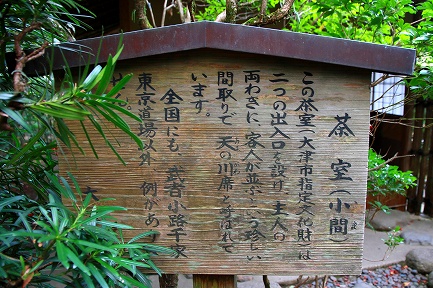 茶室(小間)
この茶室(大津市指定文化財)は
二つの出入口を設け、主人の
両わきに客人が並ぶ、珍しい
間取りで天の川席と呼ばれて
います。
全国にも、武者小路千家
東京道場以外例があり